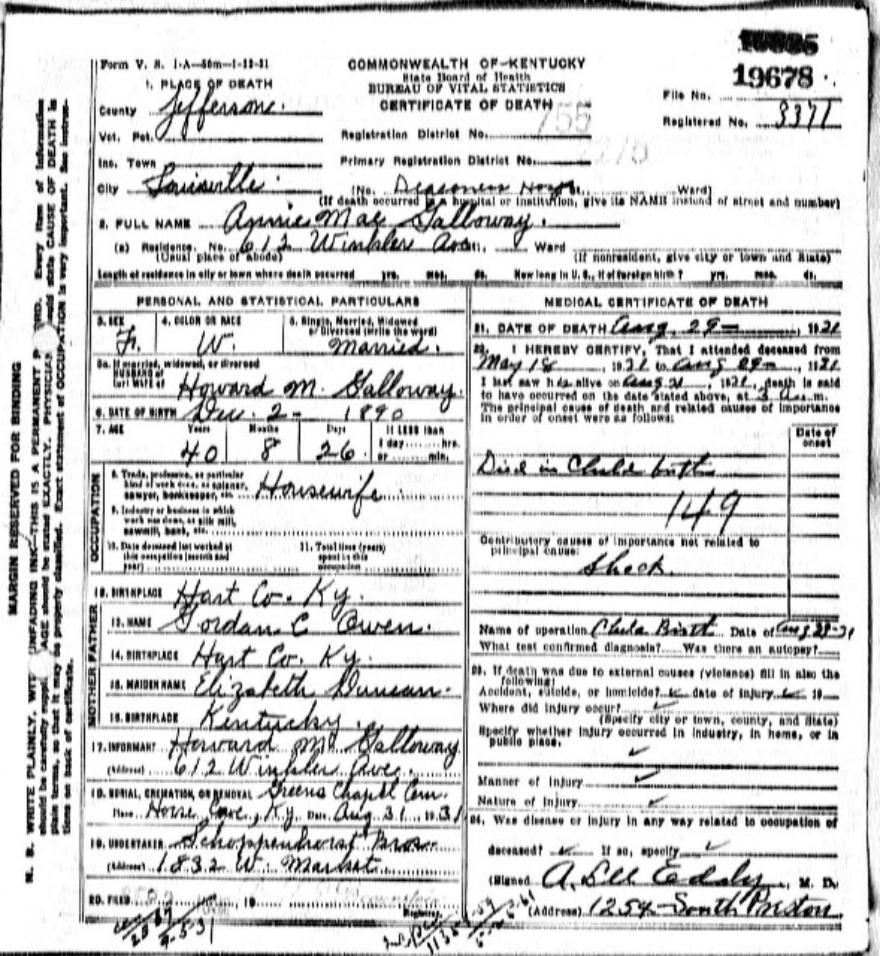 19678
Form V. S. 1-A—50m—1-12-31
COMMONWEALTH OF KENTUCKY
State Board of Health
BUREAU OF VITAL STATISTICS
CERTIFICATE OF DEATH
File No.
Registered No. 3371
1. PLACE OF DEATH
County Jefferson
Vot. Pct.
Registration District No. 755
Inc. Town
Primary Registration District No.
City Louisville
(No. Deaconess Hosp. Ward)
(If death occurred in a hospital or institution, give its NAME instead of street and number)
2. FULL NAME Annie Mae Galloway.
(a) Residence. No. 612 Winkler Ave. Ward
(Usual place of abode) (If nonresident, give city or town and State)
Length of residence in city or town where death occurred yrs. mos. ds. How long in U. S., if of foreign birth? yrs. mos. ds.
PERSONAL AND STATISTICAL PARTICULARS
3. SEX F.
4. COLOR OR RACE W.
5. Single, Married, Widowed or Divorced (write the word) Married.
5a. If married, widowed, or divorced
HUSBAND of
(or) WIFE of Howard M. Galloway.
6. DATE OF BIRTH Dec. 2- 1890
7. AGE Years Months Days If LESS than
40 8 26 1 day hrs.
or min.
OCCUPATION
8. Trade, profession, or particular
kind of work done, as spinner,
sawyer, bookkeeper, etc. Housewife
9. Industry or business in which
work was done, as silk mill,
sawmill, bank, etc.
10. Date deceased last worked at
this occupation (month and
year)
11. Total time (years)
spent in this
occupation
12. BIRTHPLACE Hart Co. Ky.
FATHER
13. NAME Jordan C Owen.
14. BIRTHPLACE Hart Co. Ky.
MOTHER
15. MAIDEN NAME Elizabeth Duncan.
16. BIRTHPLACE Kentucky.
17. INFORMANT Howard M. Galloway
(Address) 612 Winkler Ave.
18. BURIAL, CREMATION, OR REMOVAL Greens Chapel Cem.
Place Horse Cave, Ky. Date Aug. 31, 1931
19. UNDERTAKER Schoppenhorst Bros.
(Address) 1832 W. Market
20. FILED 19
Registrar.
MEDICAL CERTIFICATE OF DEATH
21. DATE OF DEATH Aug. 29- , 1931
22. I HEREBY CERTIFY, That I attended deceased from
May 18, 1931 to Aug 29- , 1931
I last saw h er alive on Aug 31, 1931, death is said
to have occurred on the date stated above, at 3 a.m.
The principal cause of death and related causes of importance
in order of onset were as follows:
Date of onset
Died in Child birth
149
Contributory causes of importance not related to
principal cause:
Shock.
Name of operation Child Birth Date of Aug 29-31
What test confirmed diagnosis? Was there an autopsy?
23. If death was due to external causes (violence) fill in also the
following:
Accident, suicide, or homicide? ✓ date of injury ✓ 19
Where did injury occur? ✓
(Specify city or town, county, and State)
Specify whether injury occurred in industry, in home, or in
public place.
✓
Manner of injury ✓
Nature of injury ✓
24. Was disease or injury in any way related to occupation of
deceased? ✓ If so, specify ✓
(Signed A. Lee Eddy, M. D.
(Address) 1254 South Preston
MARGIN RESERVED FOR BINDING